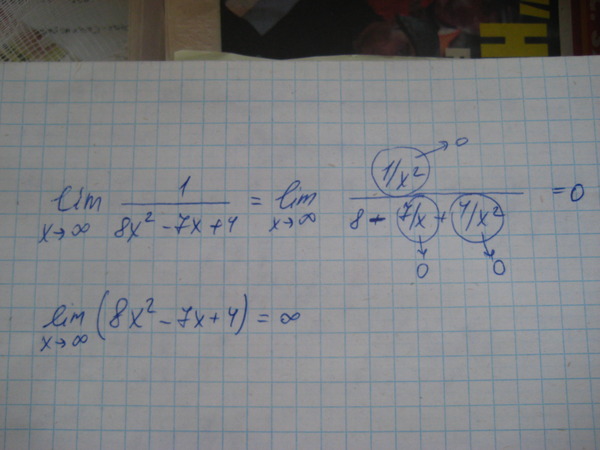 lim x→∞ 1 / (8x² - 7x + 4) = lim x→∞ (1/x² → 0) / (8 - 7/x + 4/x²) = 0
7/x → 0, 4/x² → 0
lim x→∞ (8x² - 7x + 4) = ∞